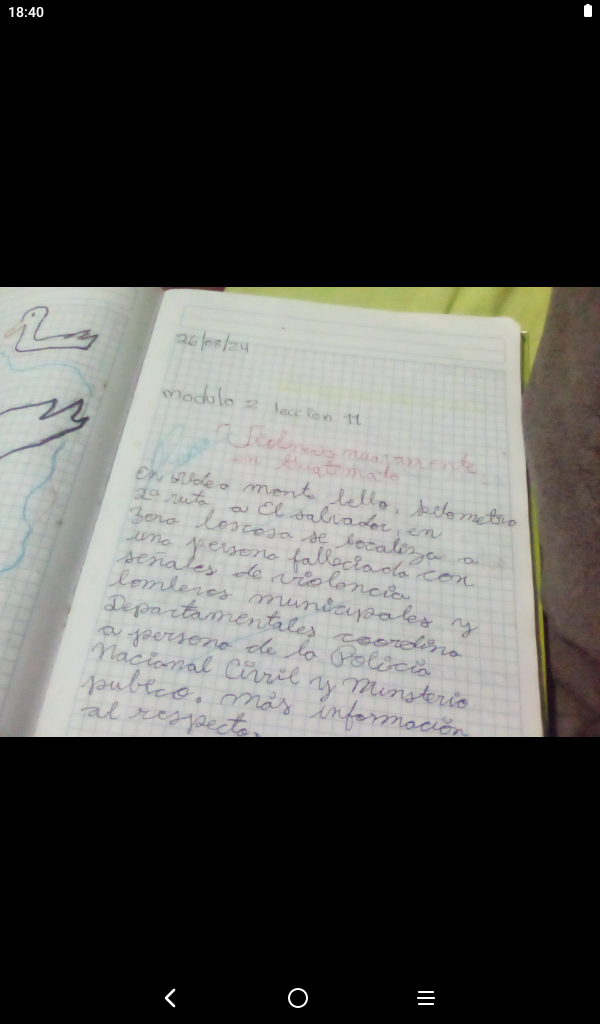 18:40
26/08/24
modulo 2 leccion 11
Violencia nuevamente
en Guatemala
En video monte bello, kilometro
2a ruta a El salvador, en
Zona boscosa se localiza a
una persona falleciada con
señales de violencia
bomberos municipales y
Departamentales coordina
a persona de la Policia
Nacional Civil y Minsterio
publico. Más información
al respecto.